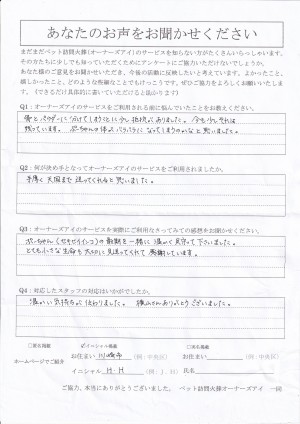 あなたのお声をお聞かせください
まだまだペット訪問火葬(オーナーズアイ)のサービスを知らない方がたくさんいらっしゃいます。
その方たちに少しでも知っていただくためにアンケートにご協力いただけないでしょうか。
あなた様のご意見をお聞かせいただき、今後の活動に反映したいと考えています。よかったこと、
嬉しかったこと、どのような些細なことでもけっこうです。ぜひご協力をよろしくお願いいたしま
す。(できるだけ具体的に書いていただけると助かります)
Q1：オーナーズアイのサービスをご利用される前に悩んでいたことをお教えください。
骨とパウダーに分けてしまうことに少し抵抗がありました。今も少しそれは
残っています。ポッちゃんの体がバラバラになってしまうのかなと思いました。
Q2：何が決め手となってオーナーズアイのサービスをご利用されましたか。
手厚く天国まで送ってくれると思いました。
Q3：オーナーズアイのサービスを実際にご利用なさってみての感想をお聞かせください。
ポッちゃん(セキセイインコ)の最期を一緒に温かく見守って下さいました。
とても小さな生命も大切に見送ってくれて感謝しています。
Q4：対応したスタッフの対応はいかがでしたか。
温かい気持ちが伝わりました。横山さんありがとうございました。
□匿名掲載 ☑イニシャル掲載 □実名掲載
ホームページでご紹介
お住まい 川崎市 (例：中央区)
お住まい (例：中央区)
イニシャル H・H (例：J．H)
氏名
ご協力、本当にありがとうございました。 ペット訪問火葬オーナーズアイ 一同